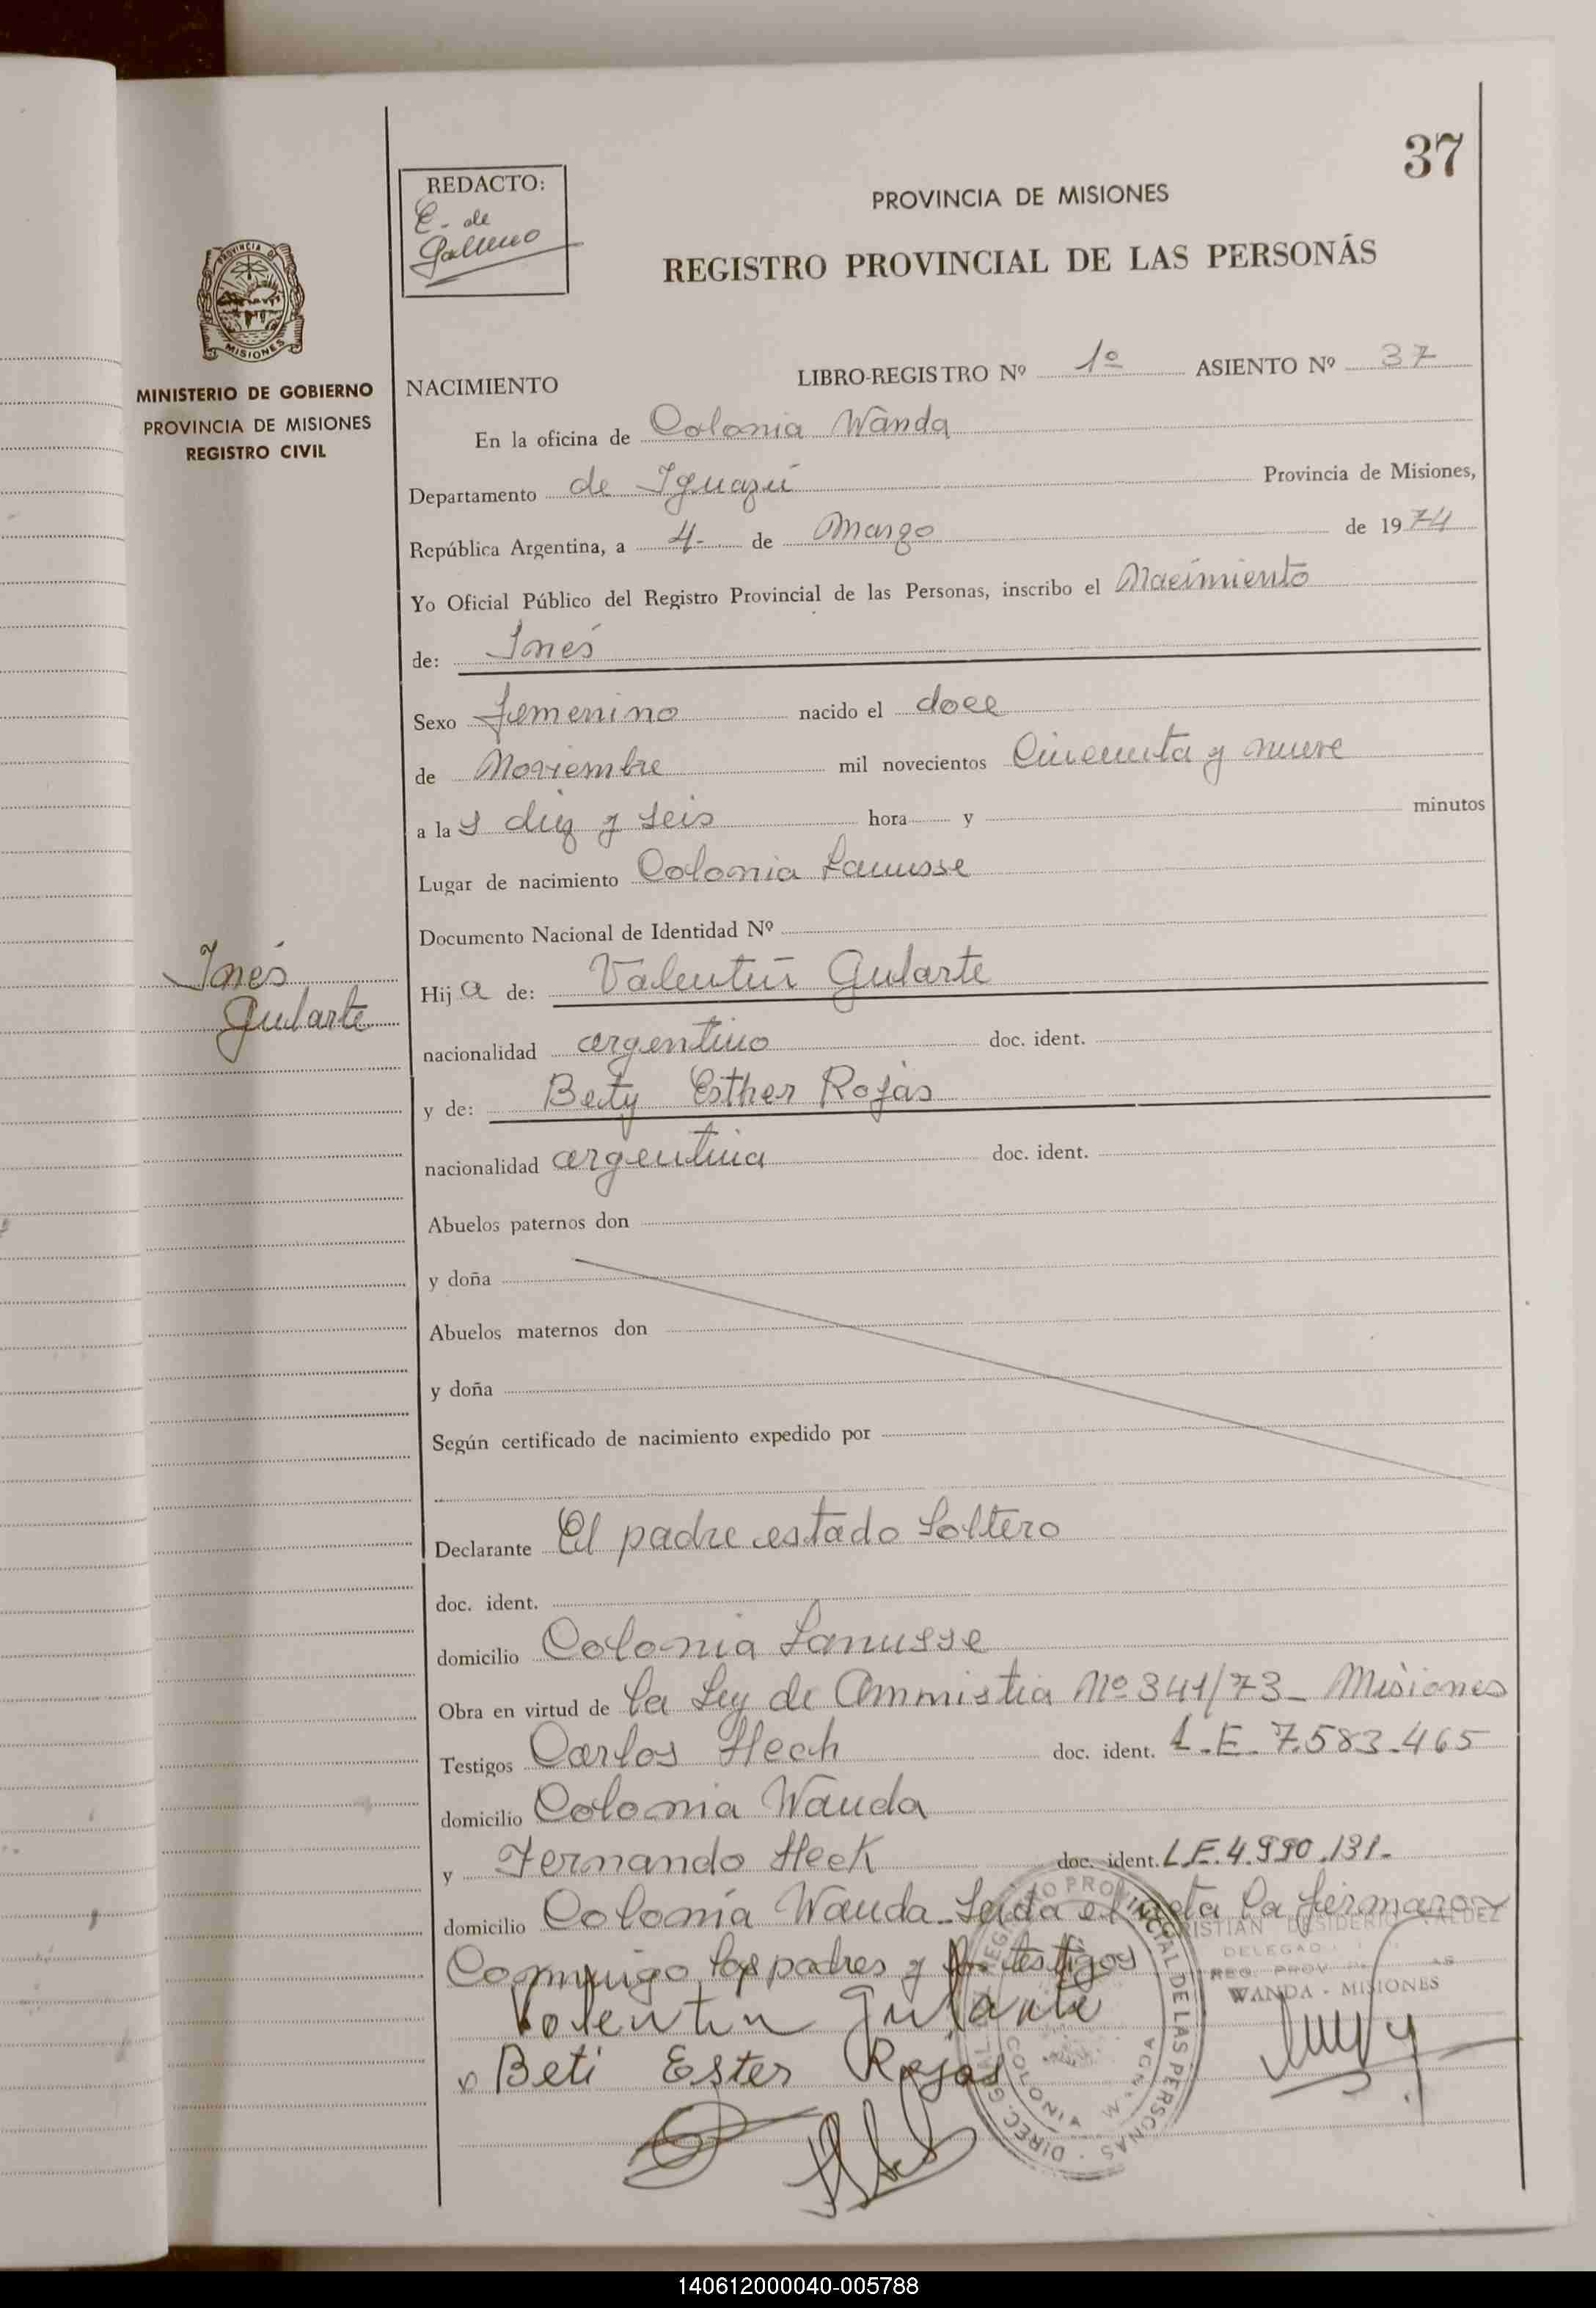 37
REDACTO:
E. de
Galeano
PROVINCIA DE MISIONES
REGISTRO PROVINCIAL DE LAS PERSONAS
PROVINCIA DE
MISIONES
MINISTERIO DE GOBIERNO
PROVINCIA DE MISIONES
REGISTRO CIVIL
NACIMIENTO LIBRO-REGISTRO Nº 1º ASIENTO Nº 37
En la oficina de Colonia Wanda
Departamento de Iguazú Provincia de Misiones,
República Argentina, a 4- de Marzo de 1974
Yo Oficial Público del Registro Provincial de las Personas, inscribo el Nacimiento
de: Inés
Sexo femenino nacido el doce
de Noviembre mil novecientos Cincuenta y nueve
a las diez y seis hora y minutos
Lugar de nacimiento Colonia Lanusse
Documento Nacional de Identidad Nº
Inés
Gularte
Hija de: Valentín Gularte
nacionalidad argentino doc. ident.
y de: Bety Esther Rojas
nacionalidad argentina doc. ident.
Abuelos paternos don
y doña
Abuelos maternos don
y doña
Según certificado de nacimiento expedido por
Declarante El padre estado Soltero
doc. ident.
domicilio Colonia Lanusse
Obra en virtud de la Ley de Ammistia Nº 341/73- Misiones
Testigos Carlos Hech doc. ident. L.E. 7.583.465
domicilio Colonia Wanda
y Fernando Heck doc. ident. L.E. 4.990.131-
domicilio Colonia Wanda- Leida el acta la firmaron
Conmigo los padres y los testigos
Valentin Gularte
Beti Ester Rojas
DIREC. GRAL. REGISTRO PROVINCIAL DE LAS PERSONAS
COLONIA WANDA
CRISTIAN DESIDERIO VALDEZ
DELEGADO
REG. PROV.
WANDA - MISIONES
140612000040-005788